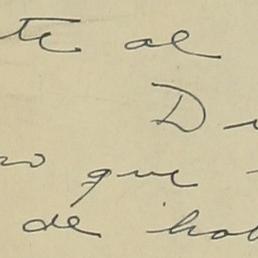 te al
D
que
de hab